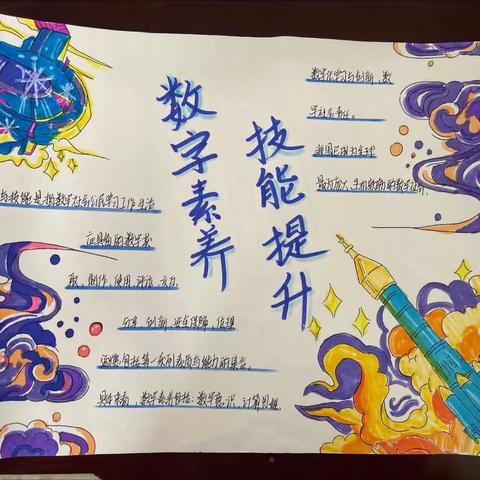 数字素养
技能提升
与技能是指数字社会公民学习工作生活
应具备的数字获
取、制作、使用、评估、交互、
分享、创新、安全保障、伦理
道德等一系列素质与能力的集合。
具体来看，数字素养包括：数字意识、计算思维、
数字化学习与创新、数
字社会责任。
我国已成为全球